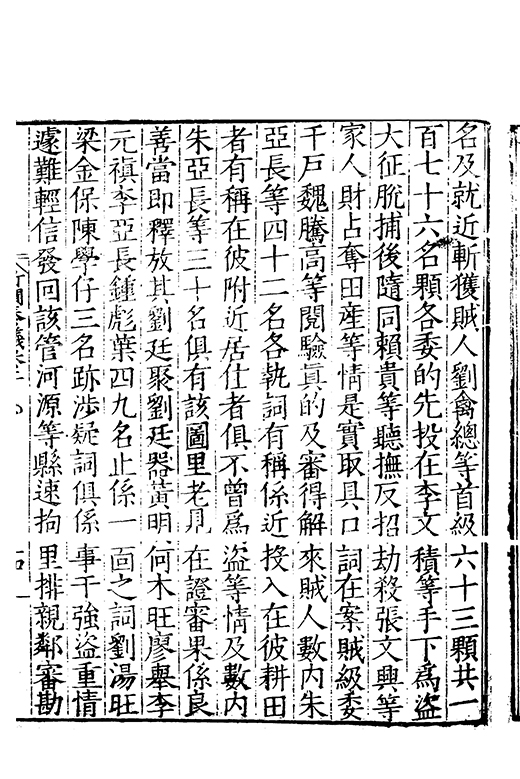 名及就近斬獲賊人劉禽總等首級六十三顆共一
百七十六名顆各委的先投在李文積等手下爲盜
大征脫捕後隨同賴貴等聽撫反招劫殺張文興等
家人財占奪田産等情是實取具口詞在案賊級委
千戶魏騰高等閱驗眞的及審得解來賊人數内朱
亞長等四十二名各執詞有稱係近投入在彼耕田
者有稱在彼附近居住者俱不曾爲盜等情及數内
朱亞長等三十名俱有該圖里老見在證審果係良
善當即釋放其劉廷聚劉廷器黃明何木旺廖舉李
元禎李亞長鍾彪葉四九名止係一面之詞劉湯旺
梁金保陳學仔三名跡涉疑詞俱係事干強盜重情
遽難輕信發回該管河源等縣速拘里排親鄰審勘